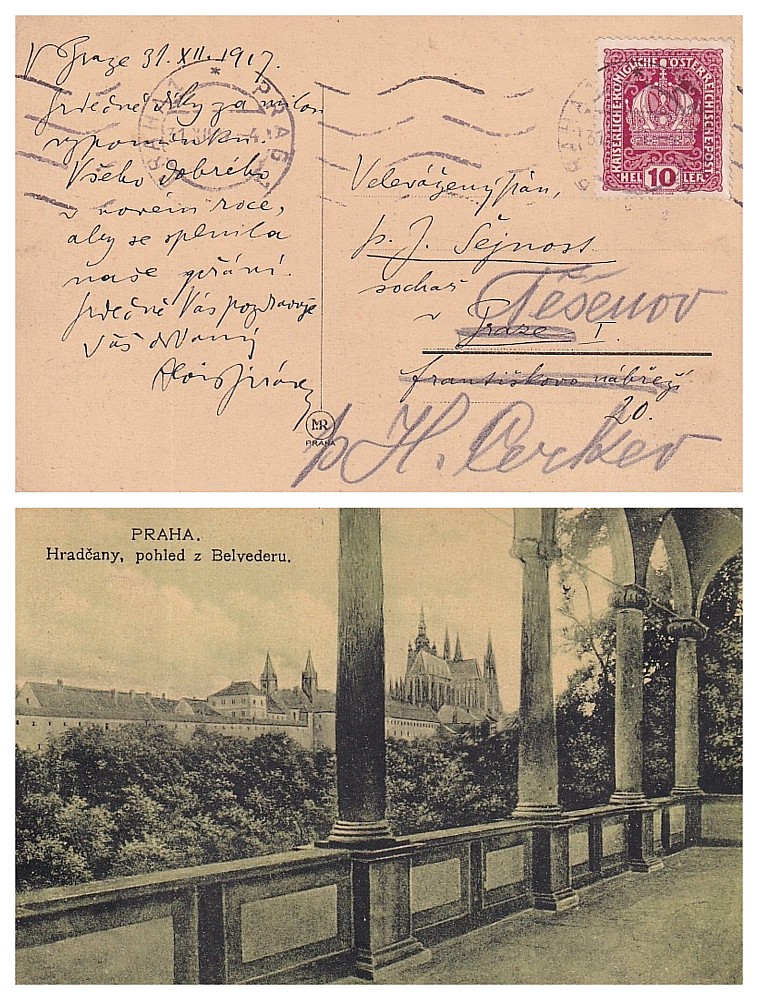 V Praze 31. XII. 1917.
Srdečné díky za milou
vzpomínku.
Všeho dobrého
v novém roce,
aby se splnila
naše přání.
Srdečně Vás pozdravuje
Váš oddaný
Alois Jirásek
Velevážený pán,
p. J. Šejnost
sochař
v Praze I.
Františkovo nábřeží
20.
Těšenov
p. H. Cerkev
KAISERLICHE KÖNIGLICHE ÖSTERREICHISCHE POST
HELLER
10
PRAG
PRAHA
MR
PRAHA
PRAHA.
Hradčany, pohled z Belvederu.